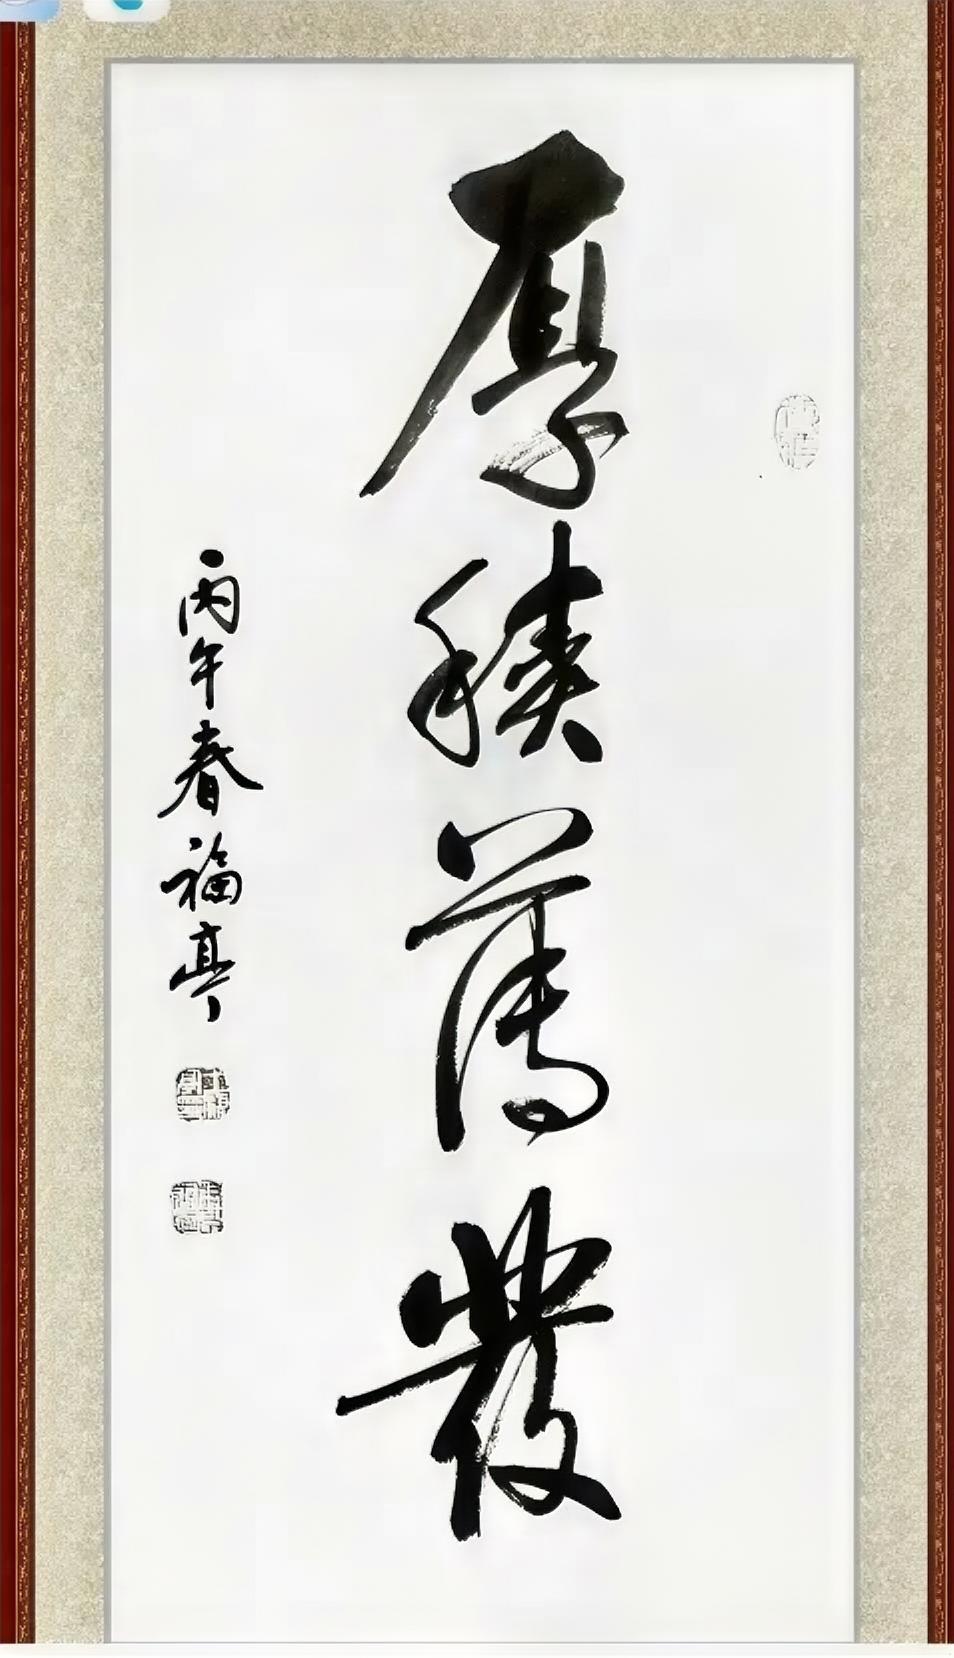 厚積薄發
丙午春福亭